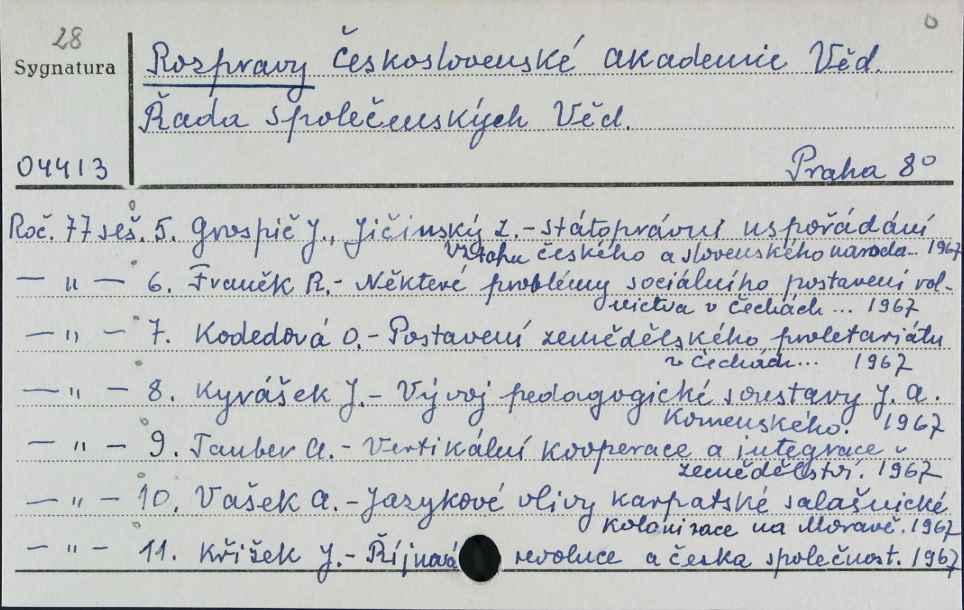 28
Sygnatura
Rozpravy Československé akademie Věd.
Řada společenských Věd.
04413
Praha 8°
Roč. 77 seš. 5. Gnospič J., Jičinský Z. - státoprávní uspořádání
vztahu českého a slovenského národa... 1967
— " — 6. Franěk R. - Některé problémy sociálního postavení rol-
nictva v Čechách... 1967
— " — 7. Kodedová O. - Postavení zemědělského proletariátu
v Čechách... 1967
— " — 8. Kyrášek J. - Vývoj pedagogické soustavy J. A.
Komenského. 1967
— " — 9. Tauber A. - Vertikální kooperace a integrace v
zemědělství. 1967
— " — 10. Vašek A. - Jazykové vlivy karpatské salašnické
kolonizace na Moravě. 1967
— " — 11. Křížek J. - Říjnová revoluce a česka společnost. 1967